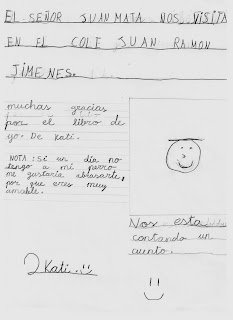 EL SEÑOR JUAN MATA NOS VISITA
EN EL COLE JUAN RAMON
JIMENES.
muchas gracias
por el libro de
yo. De Kati.
NOTA: Si un dia no
tengo a mi perro
me gustaria abrasarte,
por que eres muy
amable.
Kati.
Nos esta
contando un
cuento.